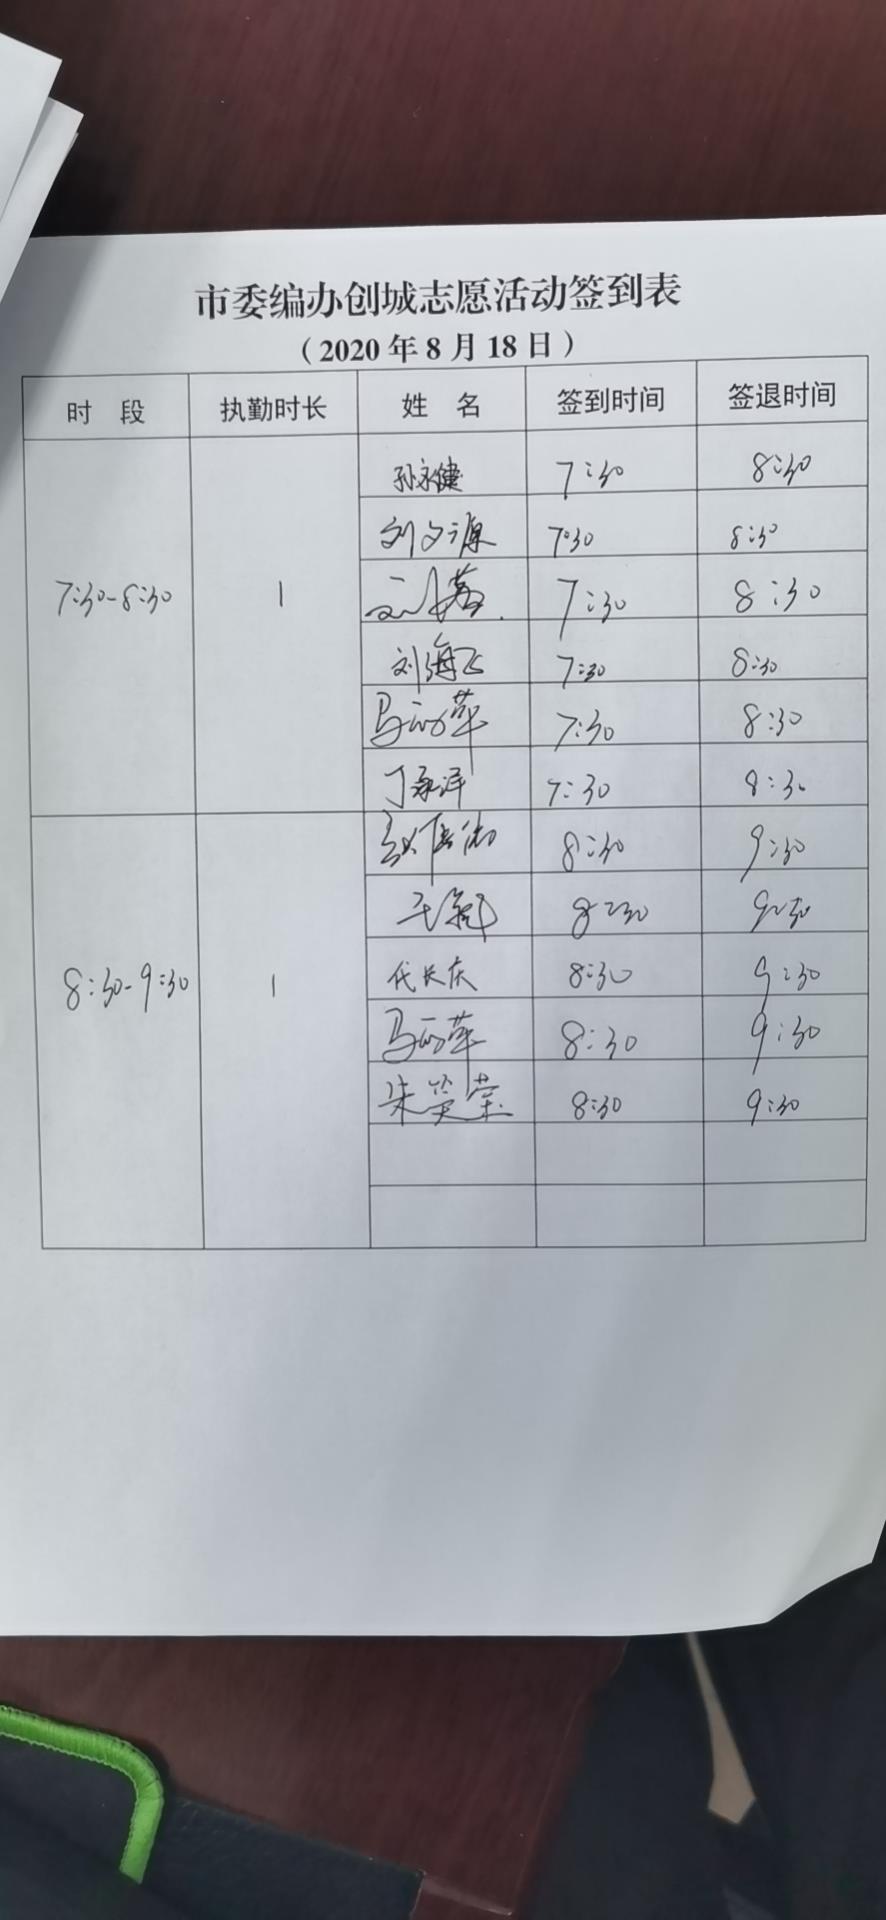 市委编办创城志愿活动签到表
（2020年8月18日）
时 段 执勤时长 姓 名 签到时间 签退时间
7:30-8:30 1 孙永健 7:30 8:30
刘文源 7:30 8:30
刘 7:30 8:30
刘海飞 7:30 8:30
马 萍 7:30 8:30
丁承洋 7:30 8:30
8:30-9:30 1 赵 8:30 9:30
8:30 9:30
代长庆 8:30 9:30
马 萍 8:30 9:30
朱笑莹 8:30 9:30